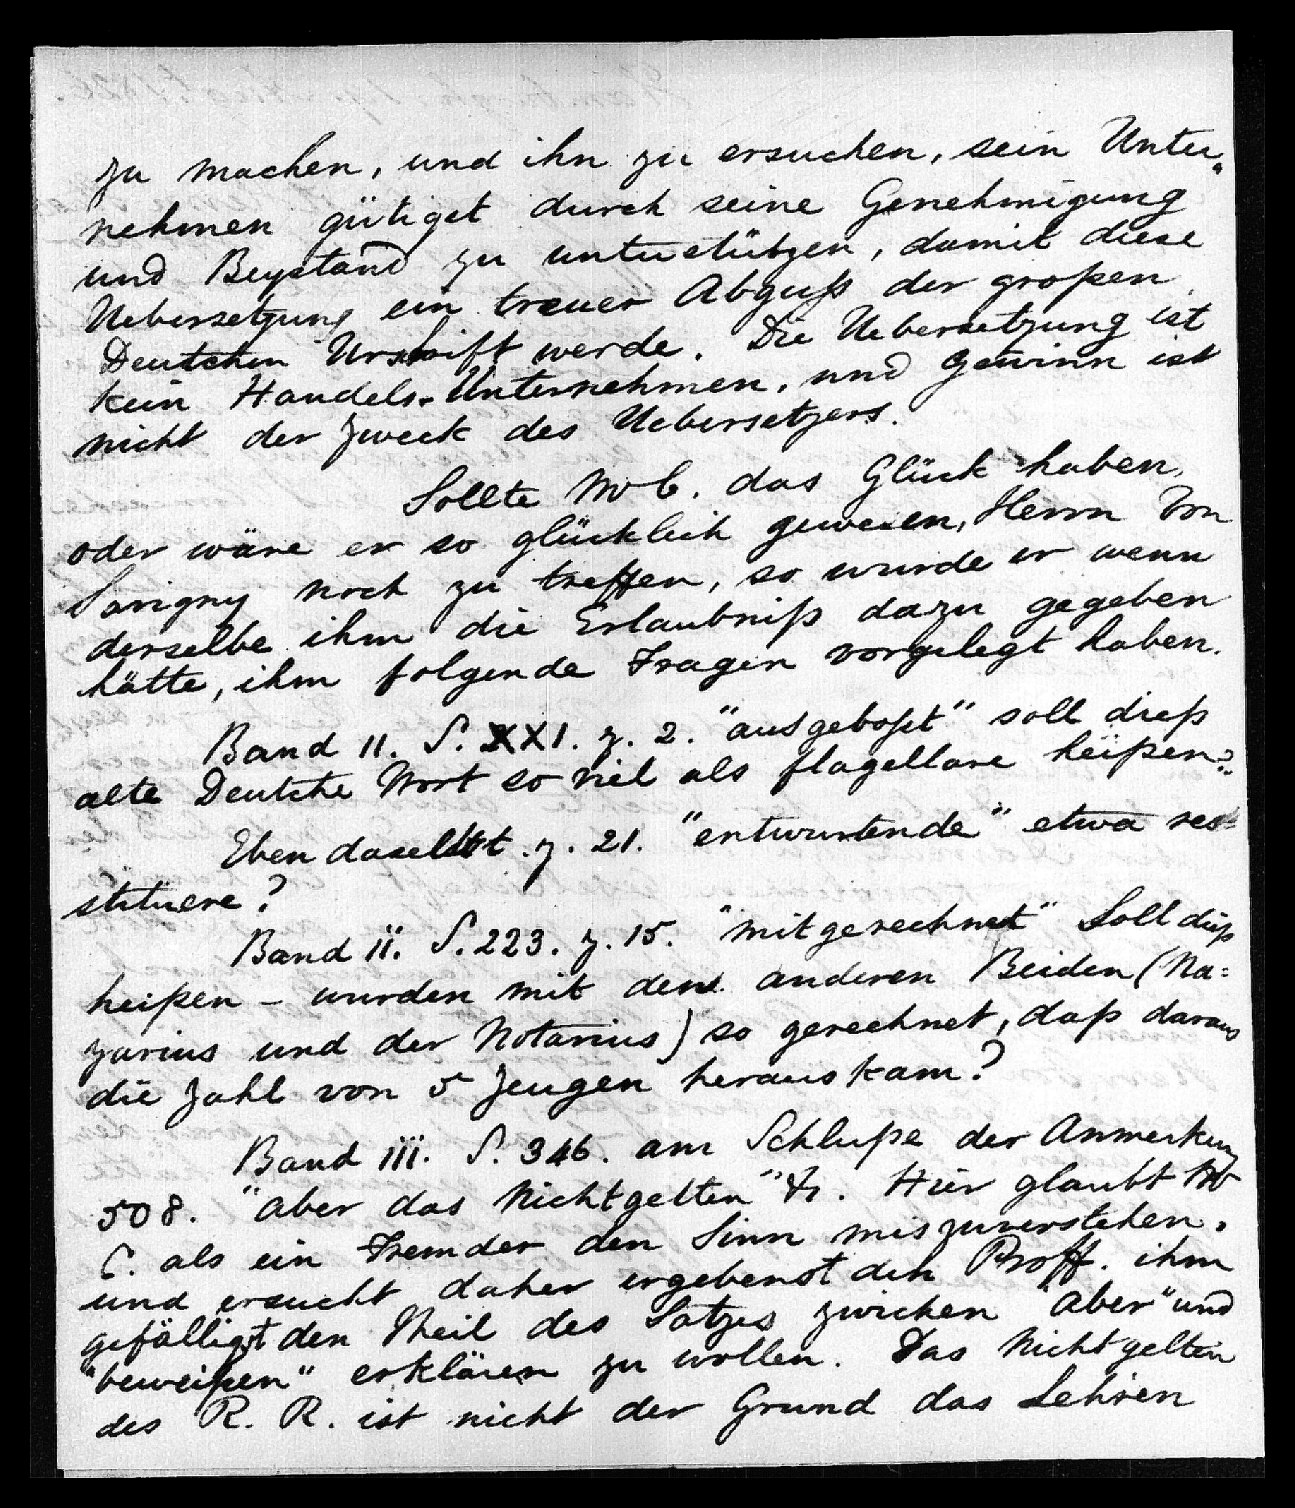 zu machen, und ihn zu ersuchen, sein Unter„
nehmen gütiget durch seine Genehmigung
und Beystand zu unterstützen, damit diese
Uebersetzung ein treuer Abguß der großen
Deutschen Urschrift werde. Die Uebersetzung ist
kein Handels-Unternehmen, und Gewinn ist
nicht der Zweck des Uebersetzers.
Sollte Mr C. das Glück haben,
oder wäre er so glücklich gewesen, Herrn von
Savigny noch zu treffen, so wurde er wenn
derselbe ihm die Erlaubniß dazu gegeben
hätte, ihm folgende Fragen vorgelegt haben.
Band II. S. XXI. z. 2. "ausgeboßt" soll dieß
alte Deutsche Wort so viel als flagellare heißen?
Eben daselbst. z. 21. "entwurtende" etwa res-
stituere?
Band ii. S. 223. z. 15. "mitgerechnet" Soll dieß
heißen – wurden mit den anderen Beiden (Na=
zarius und der Notarius) so gerechnet, daß daraus
die Zahl von 5 Zeugen herauskam?
Band iii. S. 346. am Schluße der Anmerkung
508. "aber das Nichtgelten" &. Hier glaubt Mr
C. als ein Fremder den Sinn miszuverstehen,
und ersucht daher ergebenst den Proff. ihm
gefälligst den Theil des Satzes zwichen "aber" und
"beweißen" erklären zu wollen. Das Nichtgelten
des R. R. ist nicht der Grund das Lehren